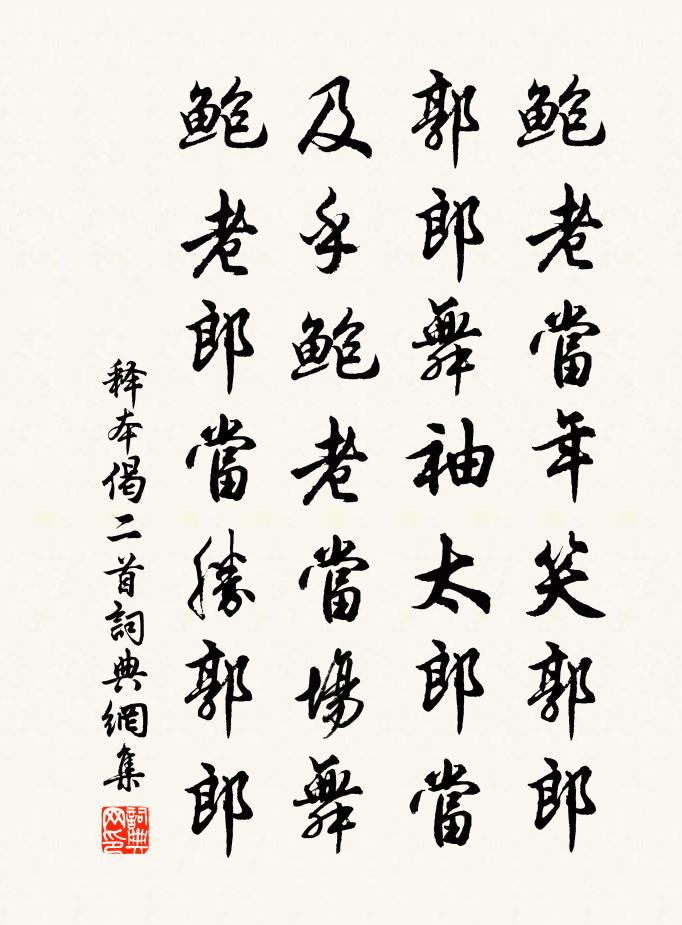 鮑老當年笑郭郎
郭郎舞袖太郎當
及乎鮑老當場舞
鮑老郎當勝郭郎
释本偈二首詞典網集
詞典網印